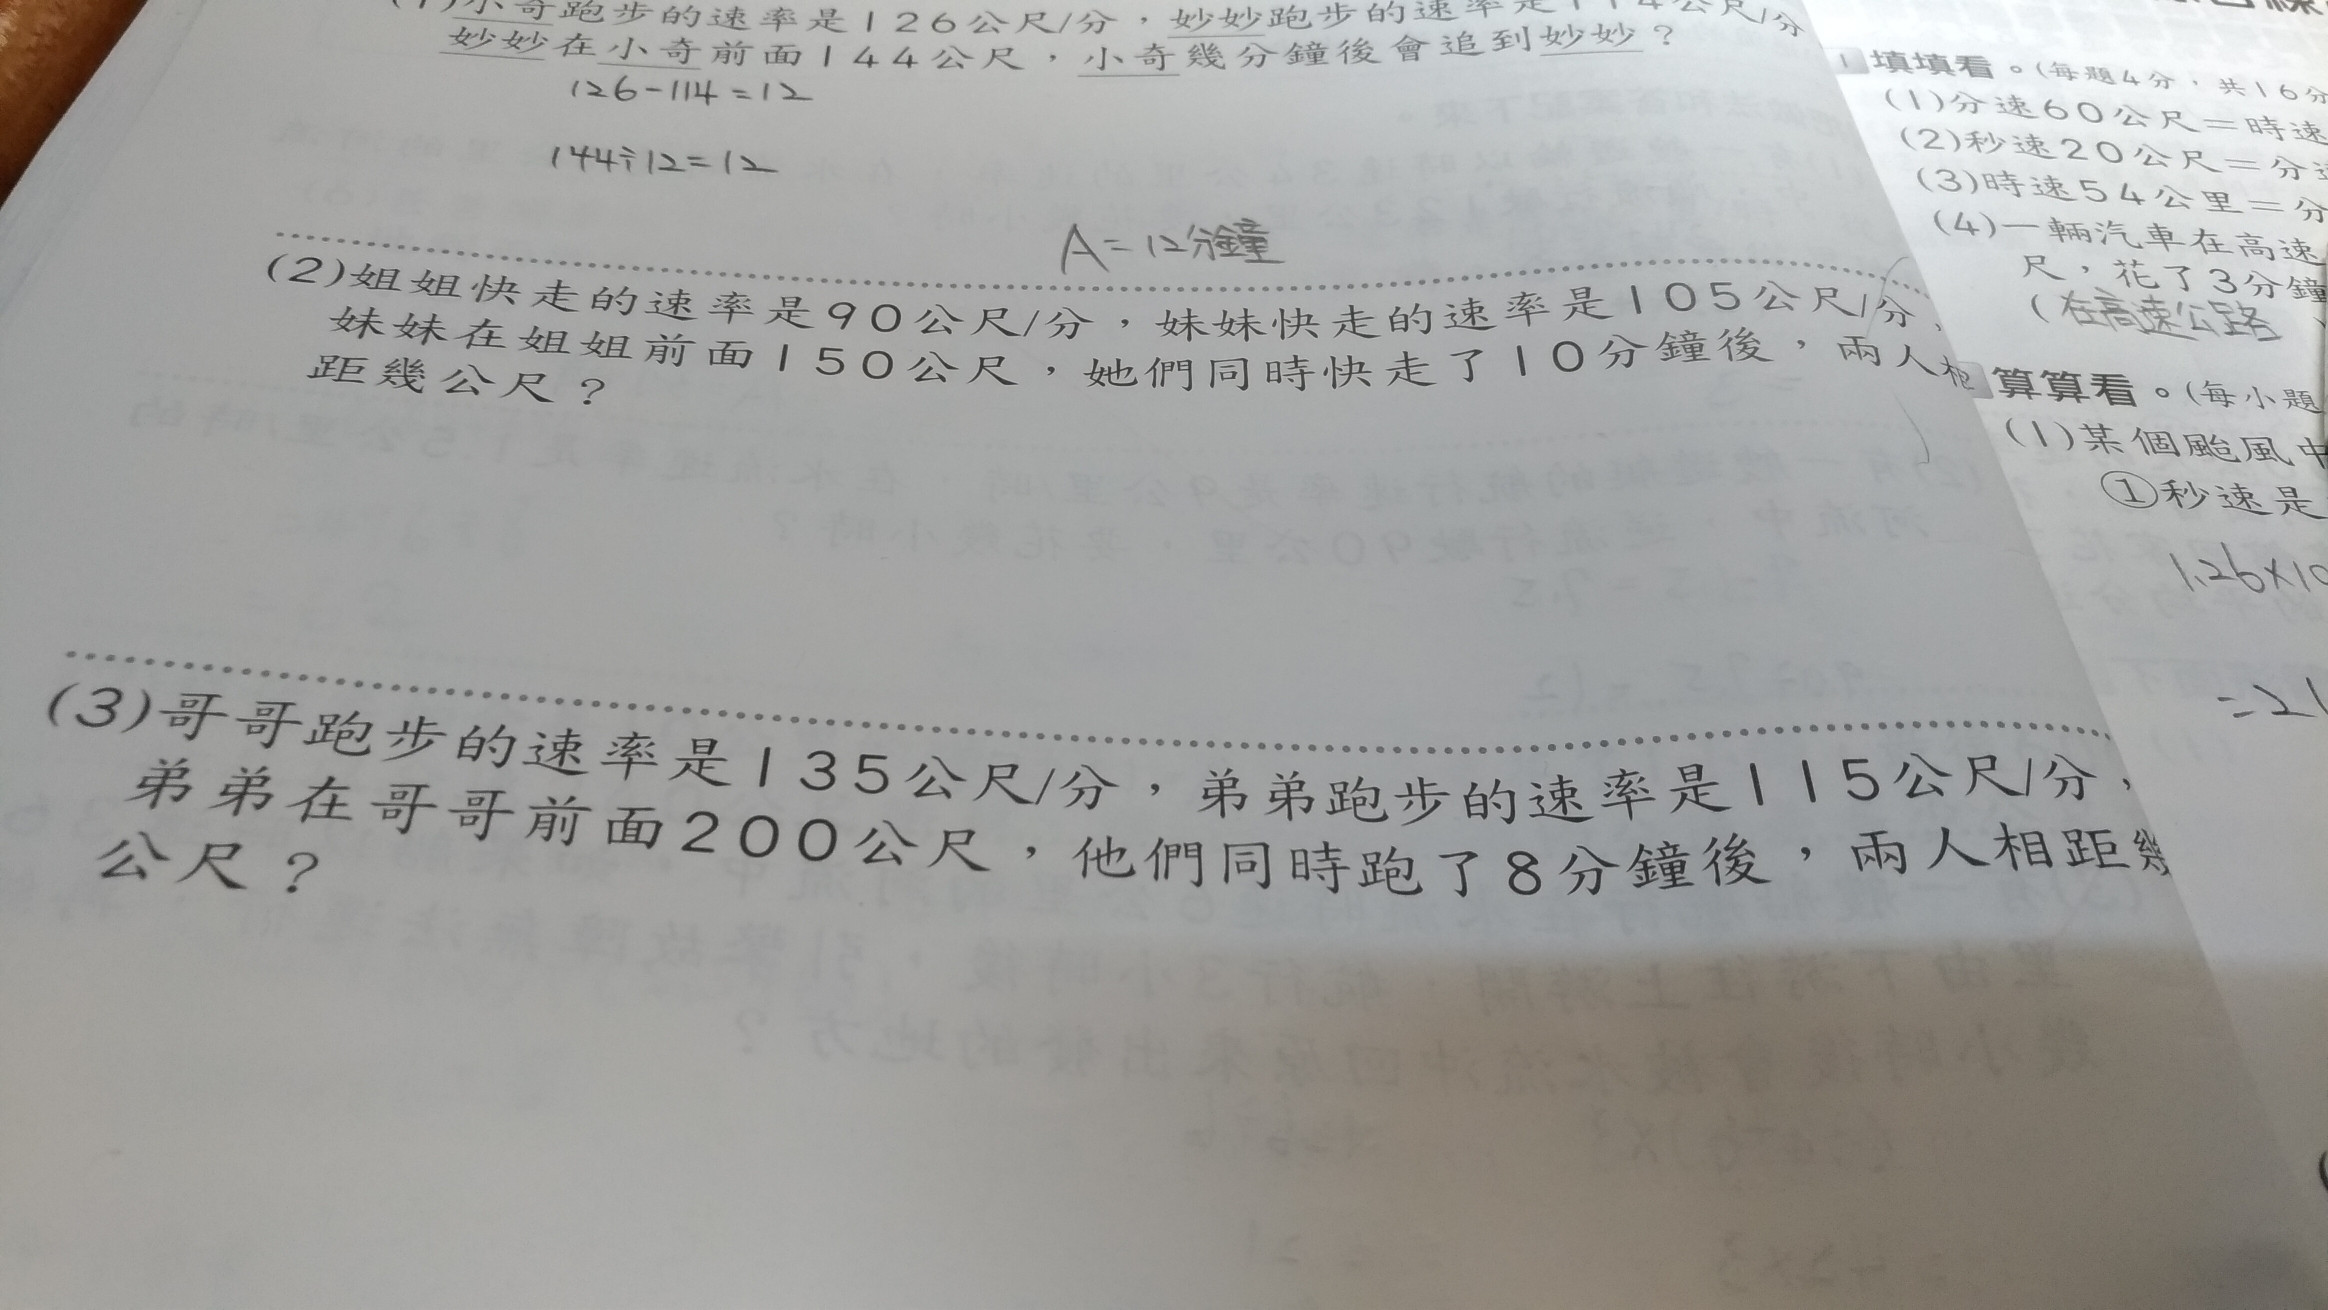 小奇跑步的速率是126公尺/分，妙妙跑步的速率是114公尺/分
妙妙在小奇前面144公尺，小奇幾分鐘後會追到妙妙？
126-114=12
144÷12=12
A=12分鐘
(2)姐姐快走的速率是90公尺/分，妹妹快走的速率是105公尺/分，
妹妹在姐姐前面150公尺，她們同時快走了10分鐘後，兩人相
距幾公尺？
(3)哥哥跑步的速率是135公尺/分，弟弟跑步的速率是115公尺/分，
弟弟在哥哥前面200公尺，他們同時跑了8分鐘後，兩人相距幾
公尺？
1 填填看。(每題4分，共16分
(1)分速60公尺＝時速
(2)秒速20公尺＝分
(3)時速54公里＝分
(4)一輛汽車在高速
尺，花了3分鐘
(在高速公路
算算看。(每小題
(1)某個颱風中
①秒速是
1.26×10
=21